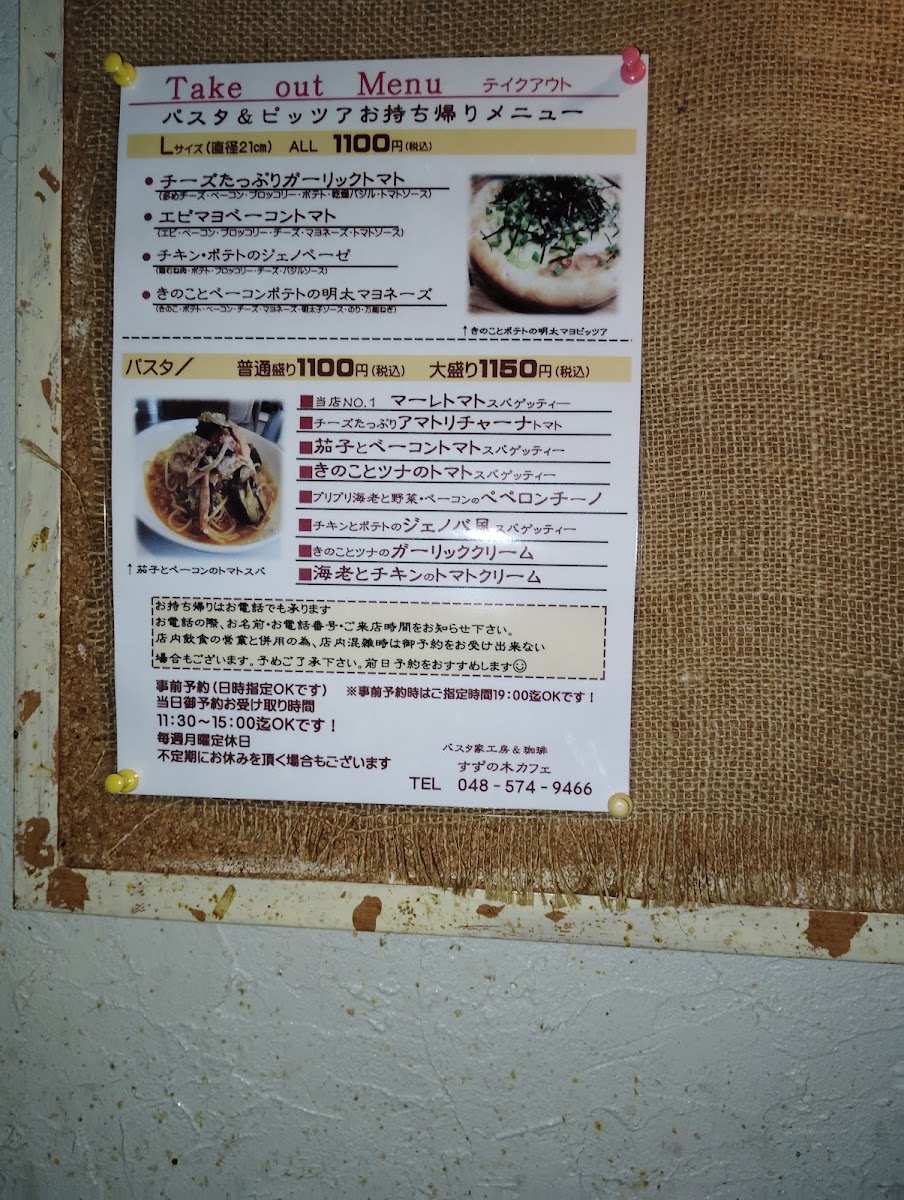 Take out Menu テイクアウト
パスタ＆ピッツアお持ち帰りメニュー
Lサイズ(直径21cm) ALL 1100円(税込)
● チーズたっぷりガーリックトマト
(多めチーズ・ベーコン・ブロッコリー・ポテト・乾燥バジル・トマトソース)
● エビマヨベーコントマト
(エビ・ベーコン・ブロッコリー・チーズ・マヨネーズ・トマトソース)
● チキン・ポテトのジェノベーゼ
(鶏むね肉・ポテト・ブロッコリー・チーズ・バジルソース)
● きのことベーコンポテトの明太マヨネーズ
(きのこ・ポテト・ベーコン・チーズ・マヨネーズ・明太子ソース・のり・万能ねぎ)
↑きのことポテトの明太マヨピッツア
パスタ/ 普通盛り1100円(税込) 大盛り1150円(税込)
■当店NO.1 マーレトマトスパゲッティー
■チーズたっぷりアマトリチャーナトマト
■茄子とベーコントマトスパゲッティー
■きのことツナのトマトスパゲッティー
■プリプリ海老と野菜・ベーコンのペペロンチーノ
■チキンとポテトのジェノバ風スパゲッティー
■きのことツナのガーリッククリーム
■海老とチキンのトマトクリーム
↑茄子とベーコンのトマトスパ
お持ち帰りはお電話でも承ります
お電話の際、お名前・お電話番号・ご来店時間をお知らせ下さい。
店内飲食の営業と併用の為、店内混雑時は御予約をお受け出来ない
場合もございます。予めご了承下さい。前日予約をおすすめします☺
事前予約(日時指定OKです) ※事前予約時はご指定時間19:00迄OKです！
当日御予約お受け取り時間
11:30～15:00迄OKです！
毎週月曜定休日
不定期にお休みを頂く場合もございます
パスタ家工房＆珈琲
すずの木カフェ
TEL 048-574-9466